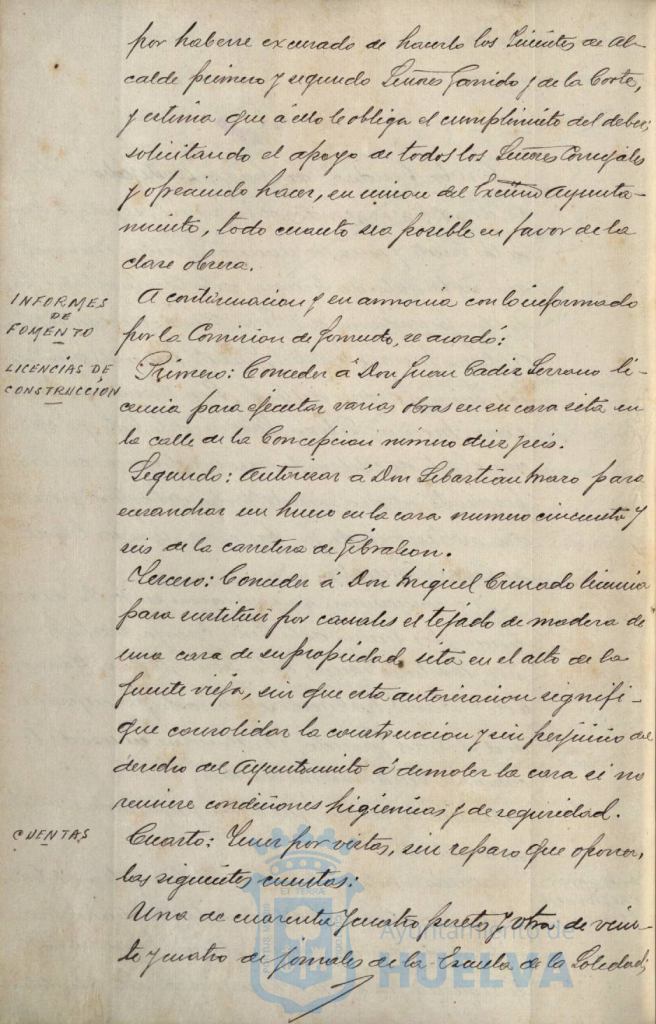 por haberse excusado de hacerlo los Tenientes de Al-
calde primero y segundo Señores Garrido y de la Corte,
y estima que á ello le obliga el cumplimiento del deber;
solicitando el apoyo de todos los Señores Concejales
y ofreciendo hacer, en union del Excmo Ayunta-
miento, todo cuanto sea posible en favor de la
clase obrera.
INFORMES
DE
FOMENTO
A continuacion y en armonia con lo informado
por la Comision de Fomento, se acordó:
LICENCIAS DE
CONSTRUCCION
Primero: Conceder á Don Juan Cadiz Serrano li-
cencia para ejecutar varias obras en su casa sita en
la calle de la Concepcion número diez y seis.
Segundo: Autorizar á Don Sebastian Maro para
ensanchar un hueco en la casa numero cincuenta y
seis de la carretera de Gibraleon.
Tercero: Conceder á Don Miguel Crusado licencia
para sustituir por canales el tejado de madera de
una casa de su propiedad, sita en el alto de la
fuente vieja, sin que esta autorizacion signifi-
que consolidar la construccion y sin perjuicio del
derecho del Ayuntamiento á demoler la casa si no
reuniere condiciones higienicas y de seguridad.
CUENTAS
Cuarto: Tener por vistas, sin reparo que oponer,
las siguientes cuentas:
Una de cuarenta y cuatro pesetas y otra de vein-
te y cuatro de jornales de la Escuela de la Soledad;
Ayuntamiento de
HUELVA